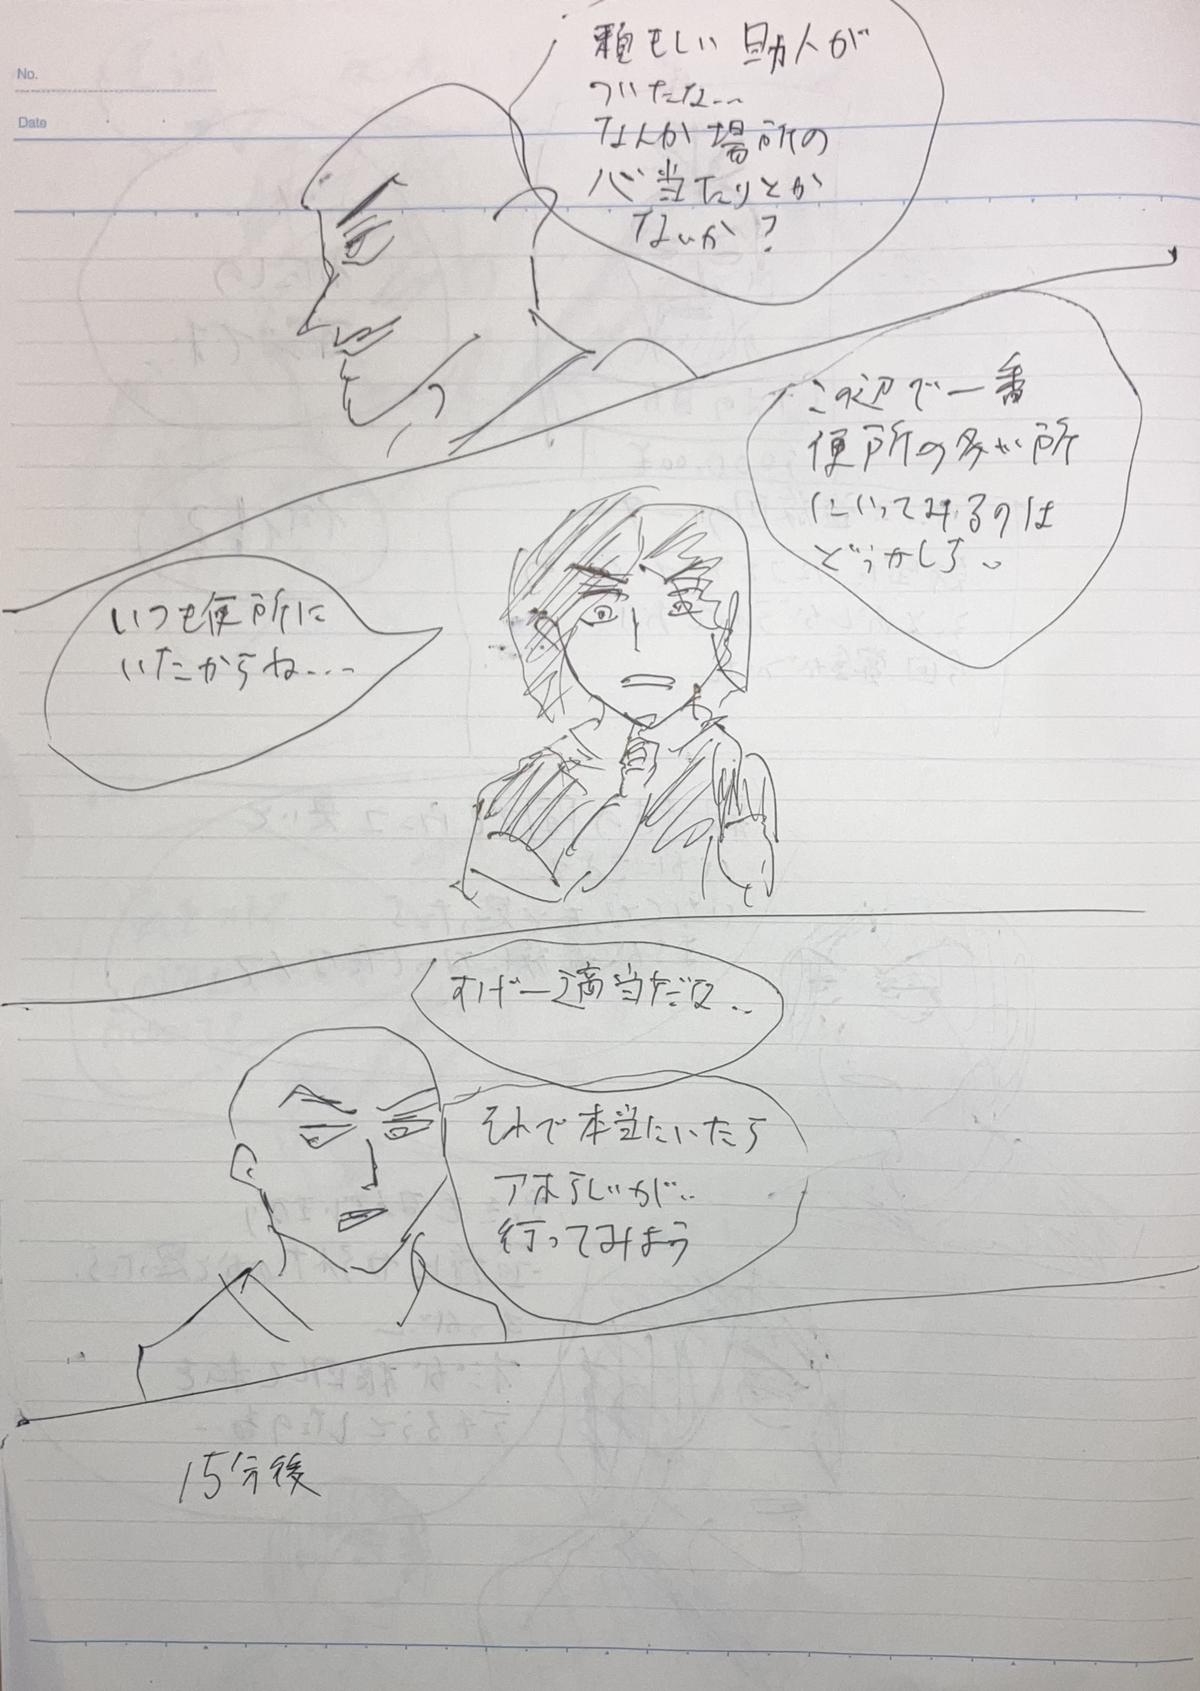 No.
Date
頼もしい助人が
ついたな...
なんか場所の
心当たりとか
ないか?
この辺で一番
便所の多い所
にいってみるのは
どうかしら..
いつも便所に
いたからね....
すげー適当だな..
それで本当にいたら
アホらしいが..
行ってみよう
15分後